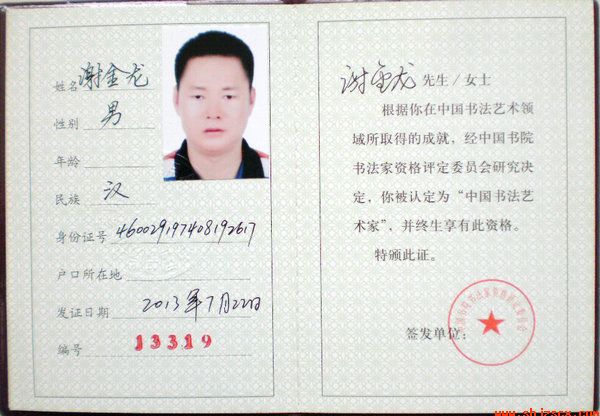 姓名 谢金龙
性别 男
年龄
民族 汉
身份证号 460029197408192617
户口所在地
发证日期 2013年7月22日
编号 13319
谢金龙 先生/女士
根据你在中国书法艺术领
域所取得的成就，经中国书院
书法家资格评定委员会研究决
定，你被认定为“中国书法艺
术家”，并终生享有此资格。
特颁此证。
签发单位：